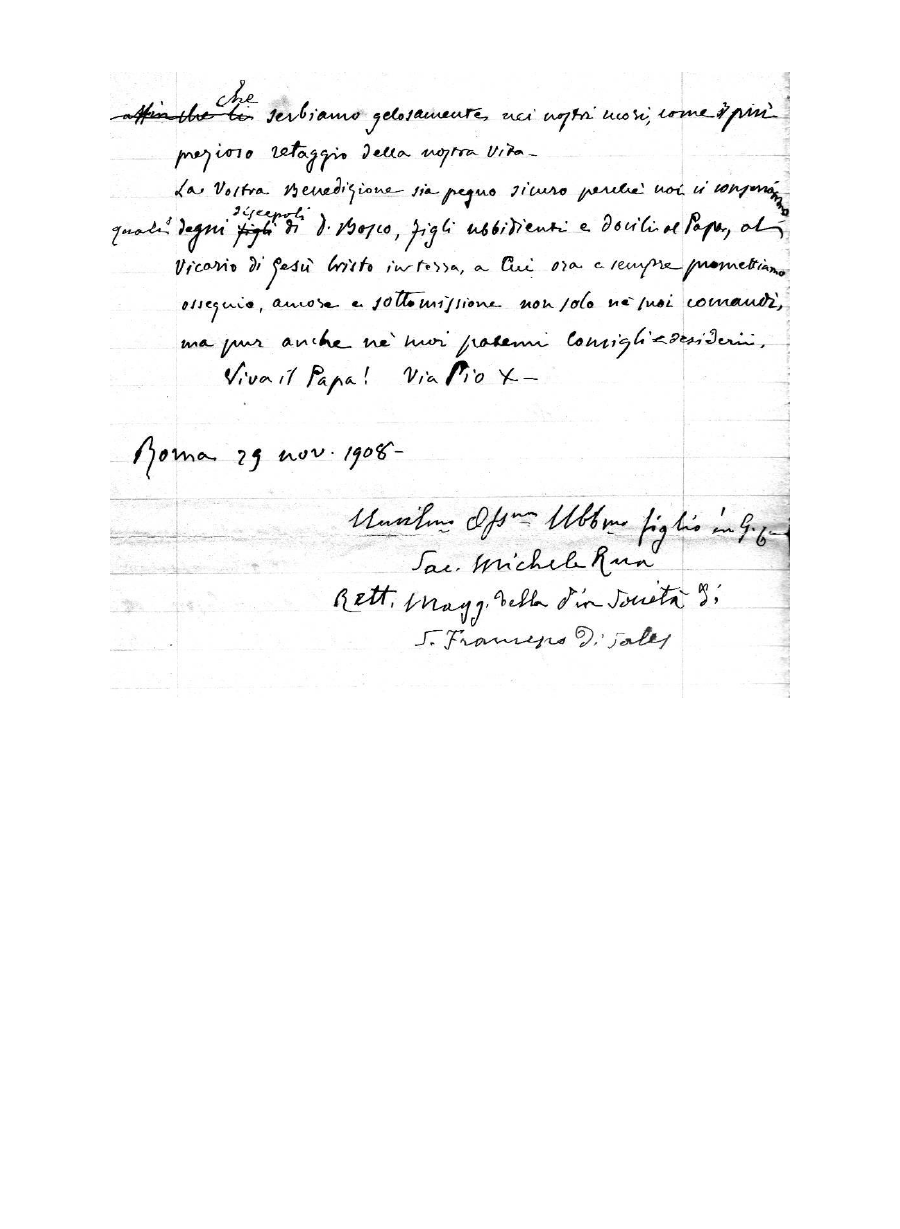 che
affinché li serbiamo gelosamente nei nostri cuori, come il più
prezioso retaggio della nostra vita –
La Vostra Benedizione sia pegno sicuro perché noi ci conserviamo
discepoli
quali degni figli di D. Bosco, figli ubbidienti e docili al Papa, al
Vicario di Gesù Cristo in terra, a Cui ora e sempre promettiamo
ossequio, amore e sottomissione non solo né suoi comandi,
ma pur anche né suoi paterni consigli e desiderii.
Viva il Papa! Via Pio X –
Roma 29 nov. 1908 –
Umilmo Ossmo Ubbmo figlio in G.
Sac. Michele Rua
Rett. Magg. della Pia Società di
S. Francesco di Sales